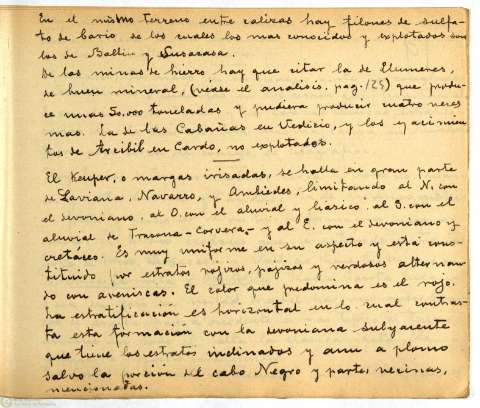 En el mismo terreno entre calizas hay filones de sulfa-
to de bario de los cuales los mas conocidos y explotados son
los de Ballin y Susacasa.
De las minas de hierro hay que citar la de Llumeres,
de buen mineral, (vease el analisis. pag. 125) que produ-
ce unas 50.000 toneladas y pudiera producir cuatro veces
mas. La de las Cabañas en Verdicio, y los yacimien-
tos de en Cardo, no explotados.
El Keuper, o margas irisadas, se halla en gran parte
de Laviana, Navarro, y Ambiedes, limitando al N. con
el devoniano. al O. con el aluvial y liasico. al S. con el
aluvial de Trasona-Corvera,- y al E. con el devoniano y
cretáceo. Es muy uniforme en su aspecto y está cons-
tituido por estratos rojizos, pajizos y verdosos alternan-
do con areniscas. El color que predomina es el rojo.
La estratificación es horizontal en lo cual contras-
ta esta formación con la devoniana subyacente
que tiene los estratos inclinados y aun a plomo
salvo la porción del cabo Negro y partes vecinas,
mencionadas.